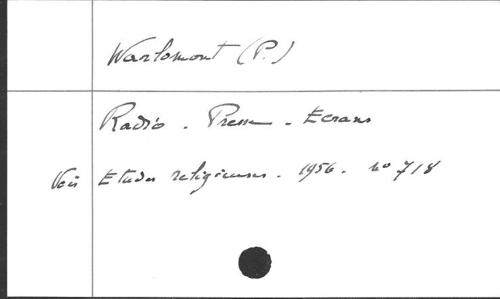 Warlomont (P.)
Radio - Presse - Ecrans
Voir Etudes religieuses - 1956 - no 718